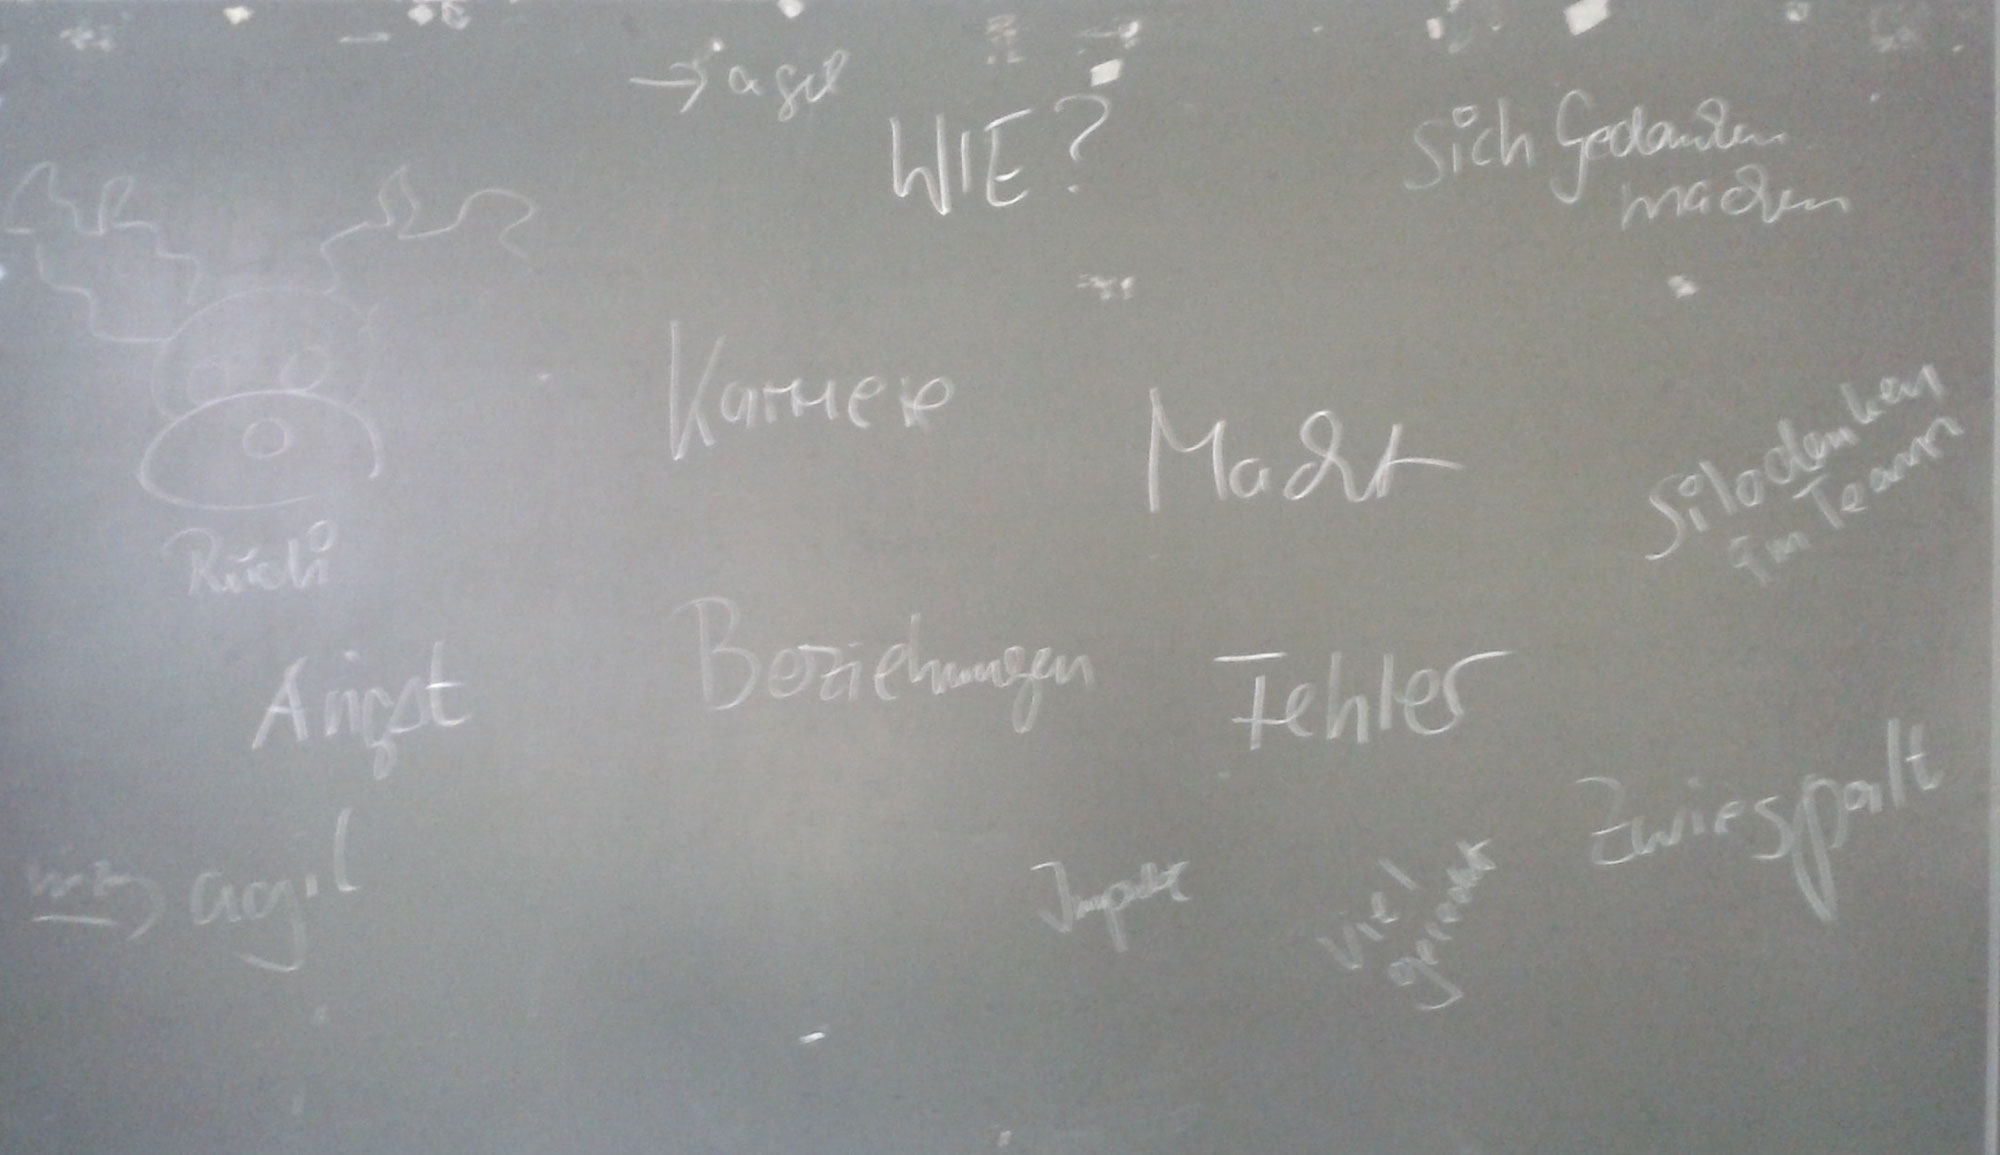 → agil
WIE?
Sich Gedanken
machen
Karriere
Macht
Silodenken
im Team
Angst
Beziehungen
Fehler
Zwiespalt
agil
Impulse
viel